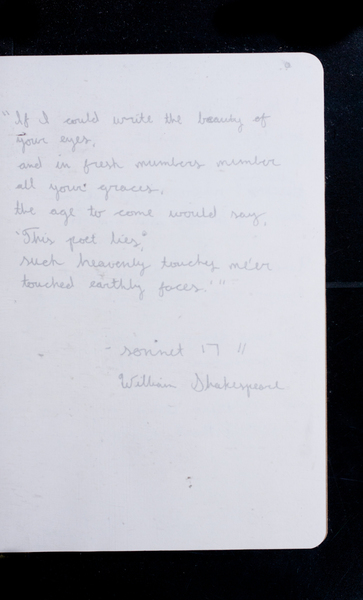 "If I could write the beauty of
your eyes,
and in fresh numbers number
all your graces,
the age to come would say,
'This poet lies,
such heavenly touches ne'er
touched earthly faces.'"
- sonnet 17 //
William Shakespeare